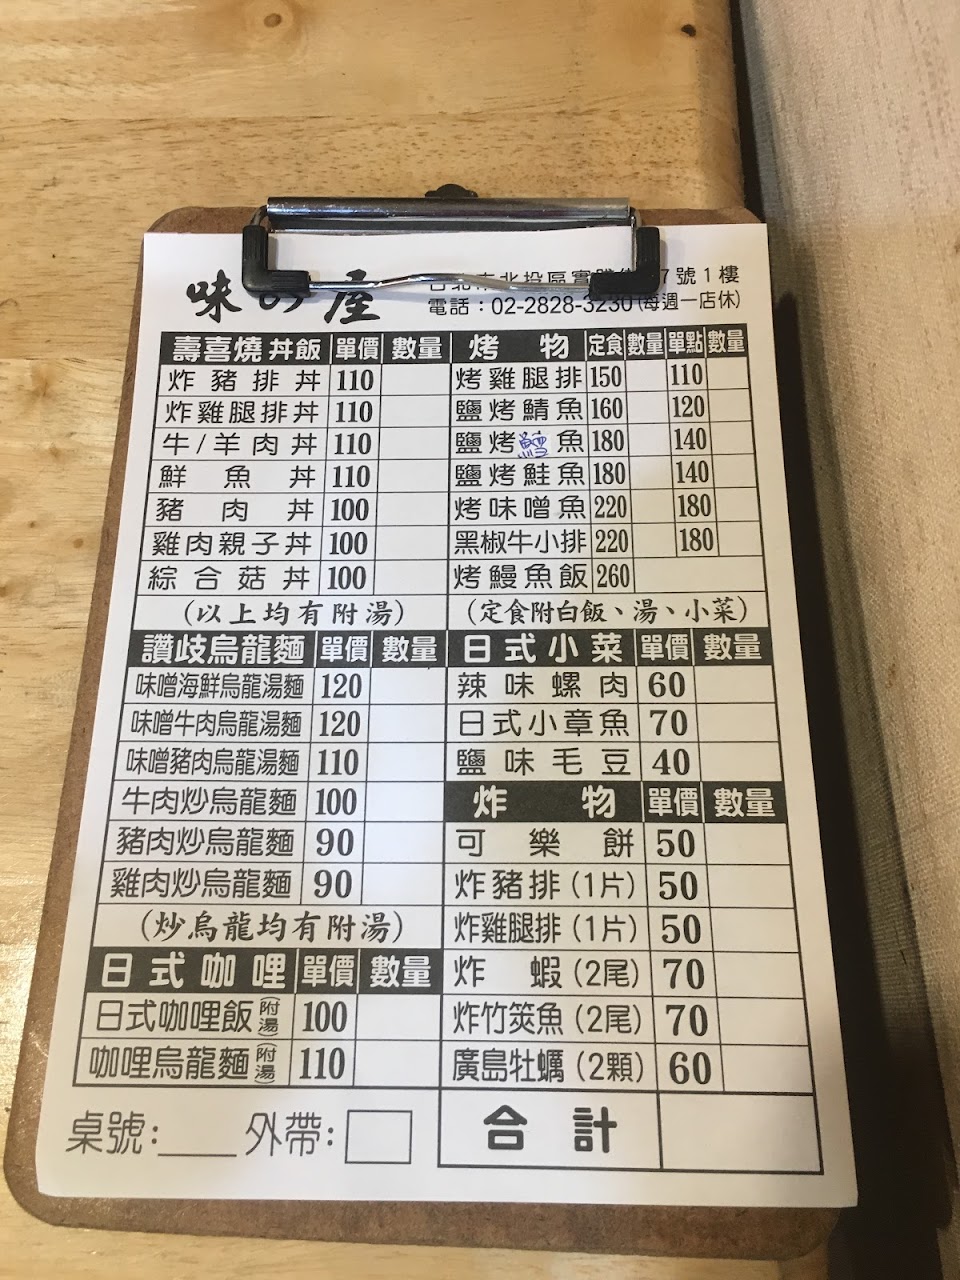 味の屋
7號1樓
電話：02-2828-3230(每週一店休)
壽喜燒丼飯 單價 數量
炸豬排丼 110
炸雞腿排丼 110
牛/羊肉丼 110
鮮魚丼 110
豬肉丼 100
雞肉親子丼 100
綜合菇丼 100
(以上均有附湯)
讚歧烏龍麵 單價 數量
味噌海鮮烏龍湯麵 120
味噌牛肉烏龍湯麵 120
味噌豬肉烏龍湯麵 110
牛肉炒烏龍麵 100
豬肉炒烏龍麵 90
雞肉炒烏龍麵 90
(炒烏龍均有附湯)
日式咖哩 單價 數量
日式咖哩飯(附湯) 100
咖哩烏龍麵(附湯) 110
烤物 定食 數量 單點 數量
烤雞腿排 150 110
鹽烤鯖魚 160 120
鹽烤鱈魚 180 140
鹽烤鮭魚 180 140
烤味噌魚 220 180
黑椒牛小排 220 180
烤鰻魚飯 260
(定食附白飯、湯、小菜)
日式小菜 單價 數量
辣味螺肉 60
日式小章魚 70
鹽味毛豆 40
炸物 單價 數量
可樂餅 50
炸豬排(1片) 50
炸雞腿排(1片) 50
炸蝦(2尾) 70
炸竹筴魚(2尾) 70
廣島牡蠣(2顆) 60
桌號: 外帶:
合計